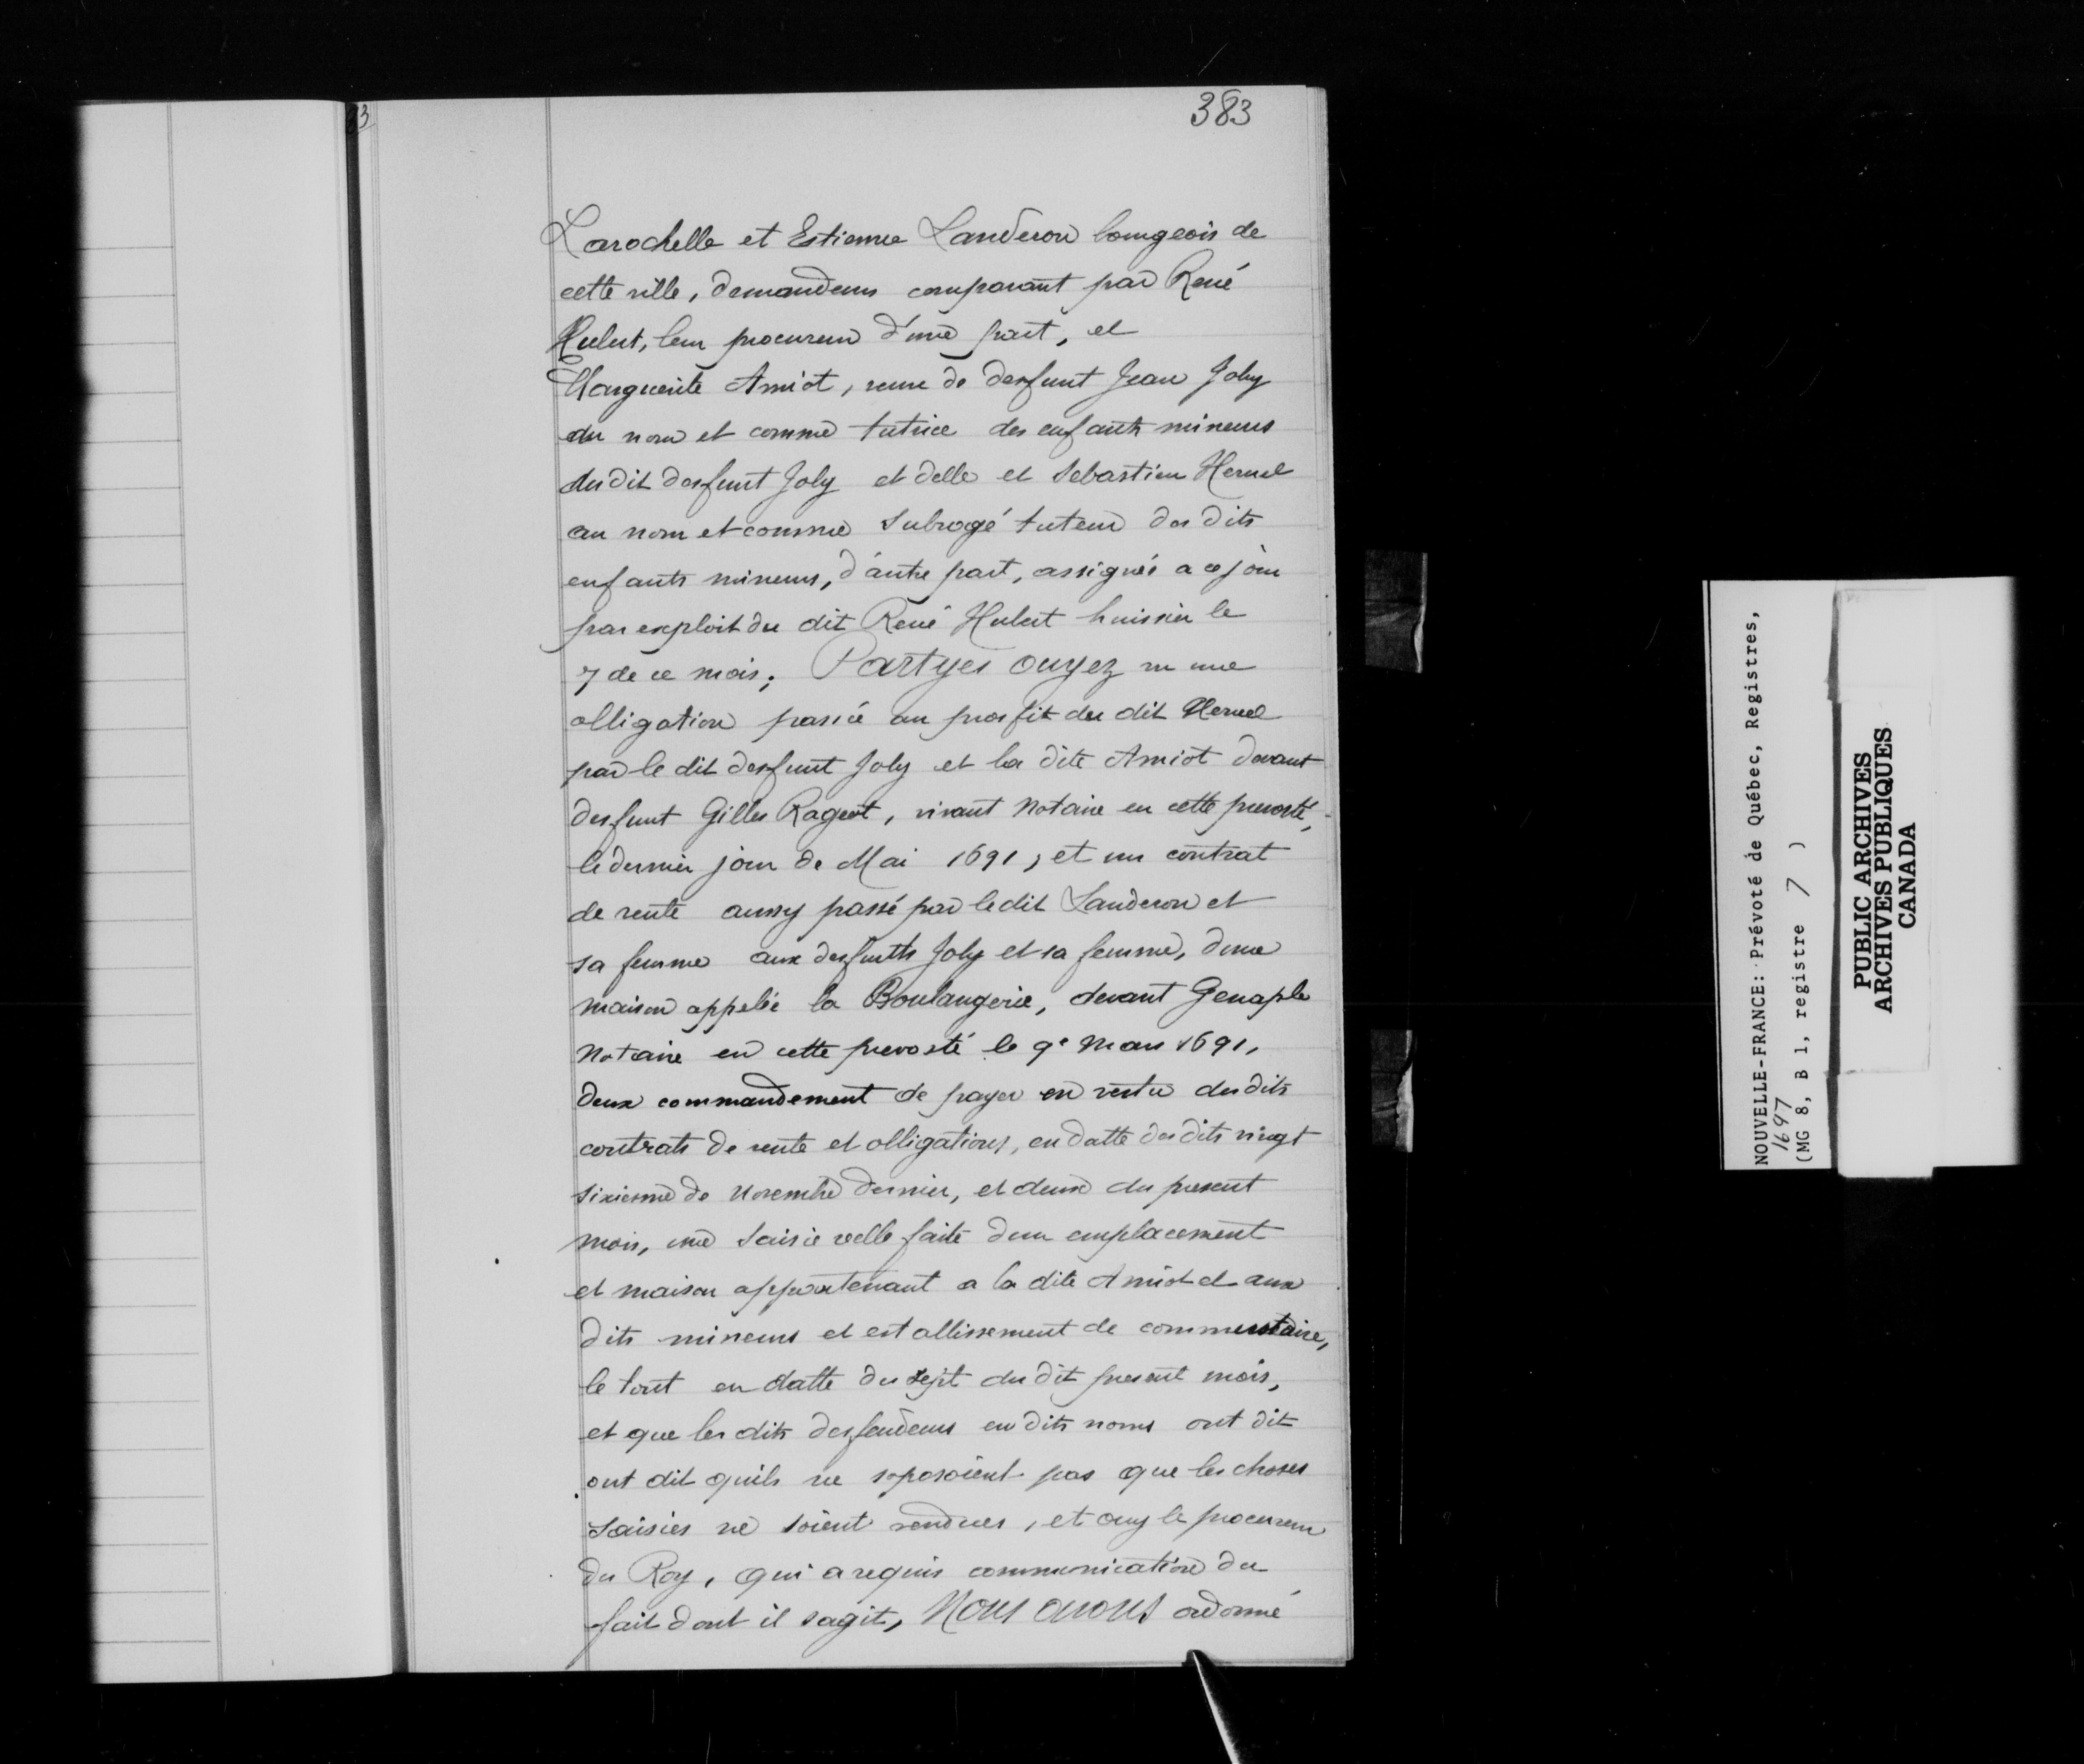 383
Larochelle et Estienne Landeron bourgeois de
cette ville, demandeurs comparant par René
Hubert, leur procureur d'une part, et
Marguerite Amiot, veuve de desfunt Jean Joly
au nom et comme tutrice des enfants mineurs
du dit desfunt Joly et delle et Sebastien Hervel
au nom et comme subrogé tuteur des dits
enfants mineurs, d'autre part, assignés a ce jour
par exploit du dit René Hubert huissier le
7 de ce mois; Partyes ouyez vu une
obligation passée au proffit du dit Hervel
par le dit desfunt Joly et la dite Amiot devant
desfunt Gilles Rageot, vivant Notaire en cette prevosté,
le dernier jour de Mai 1691, et un contrat
de rente aussy passé par le dit Landeron et
sa femme aux desfuntts Joly et sa femme, dune
maison appelée la Boulangerie, devant Genaple
Notaire en cette prevosté le 9e Mars 1691,
deux commandement de payer en vertu des dits
contrats de rente et obligations, en datte des dits vingt
sixiesme de Novembre dernier, et deux du present
mois, une saisie reelle faite dun emplacement
et maison appartenant a la dite Amiot et aux
dits mineurs et establissement de commentaire,
le tout en datte du sept du dit present mois,
et que les dits desfendeurs en dits noms ont dit
ont dit quils ne soposoient pas que les choses
saisies ne soient vendues, et ouy le procureur
du Roy, qui a requis communication du
fait dont il sagit, Nous avons ordonné
NOUVELLE-FRANCE: Prévoté de Québec, Registres,
1697
(MG 8, B 1, registre 7 )
PUBLIC ARCHIVES
ARCHIVES PUBLIQUES
CANADA